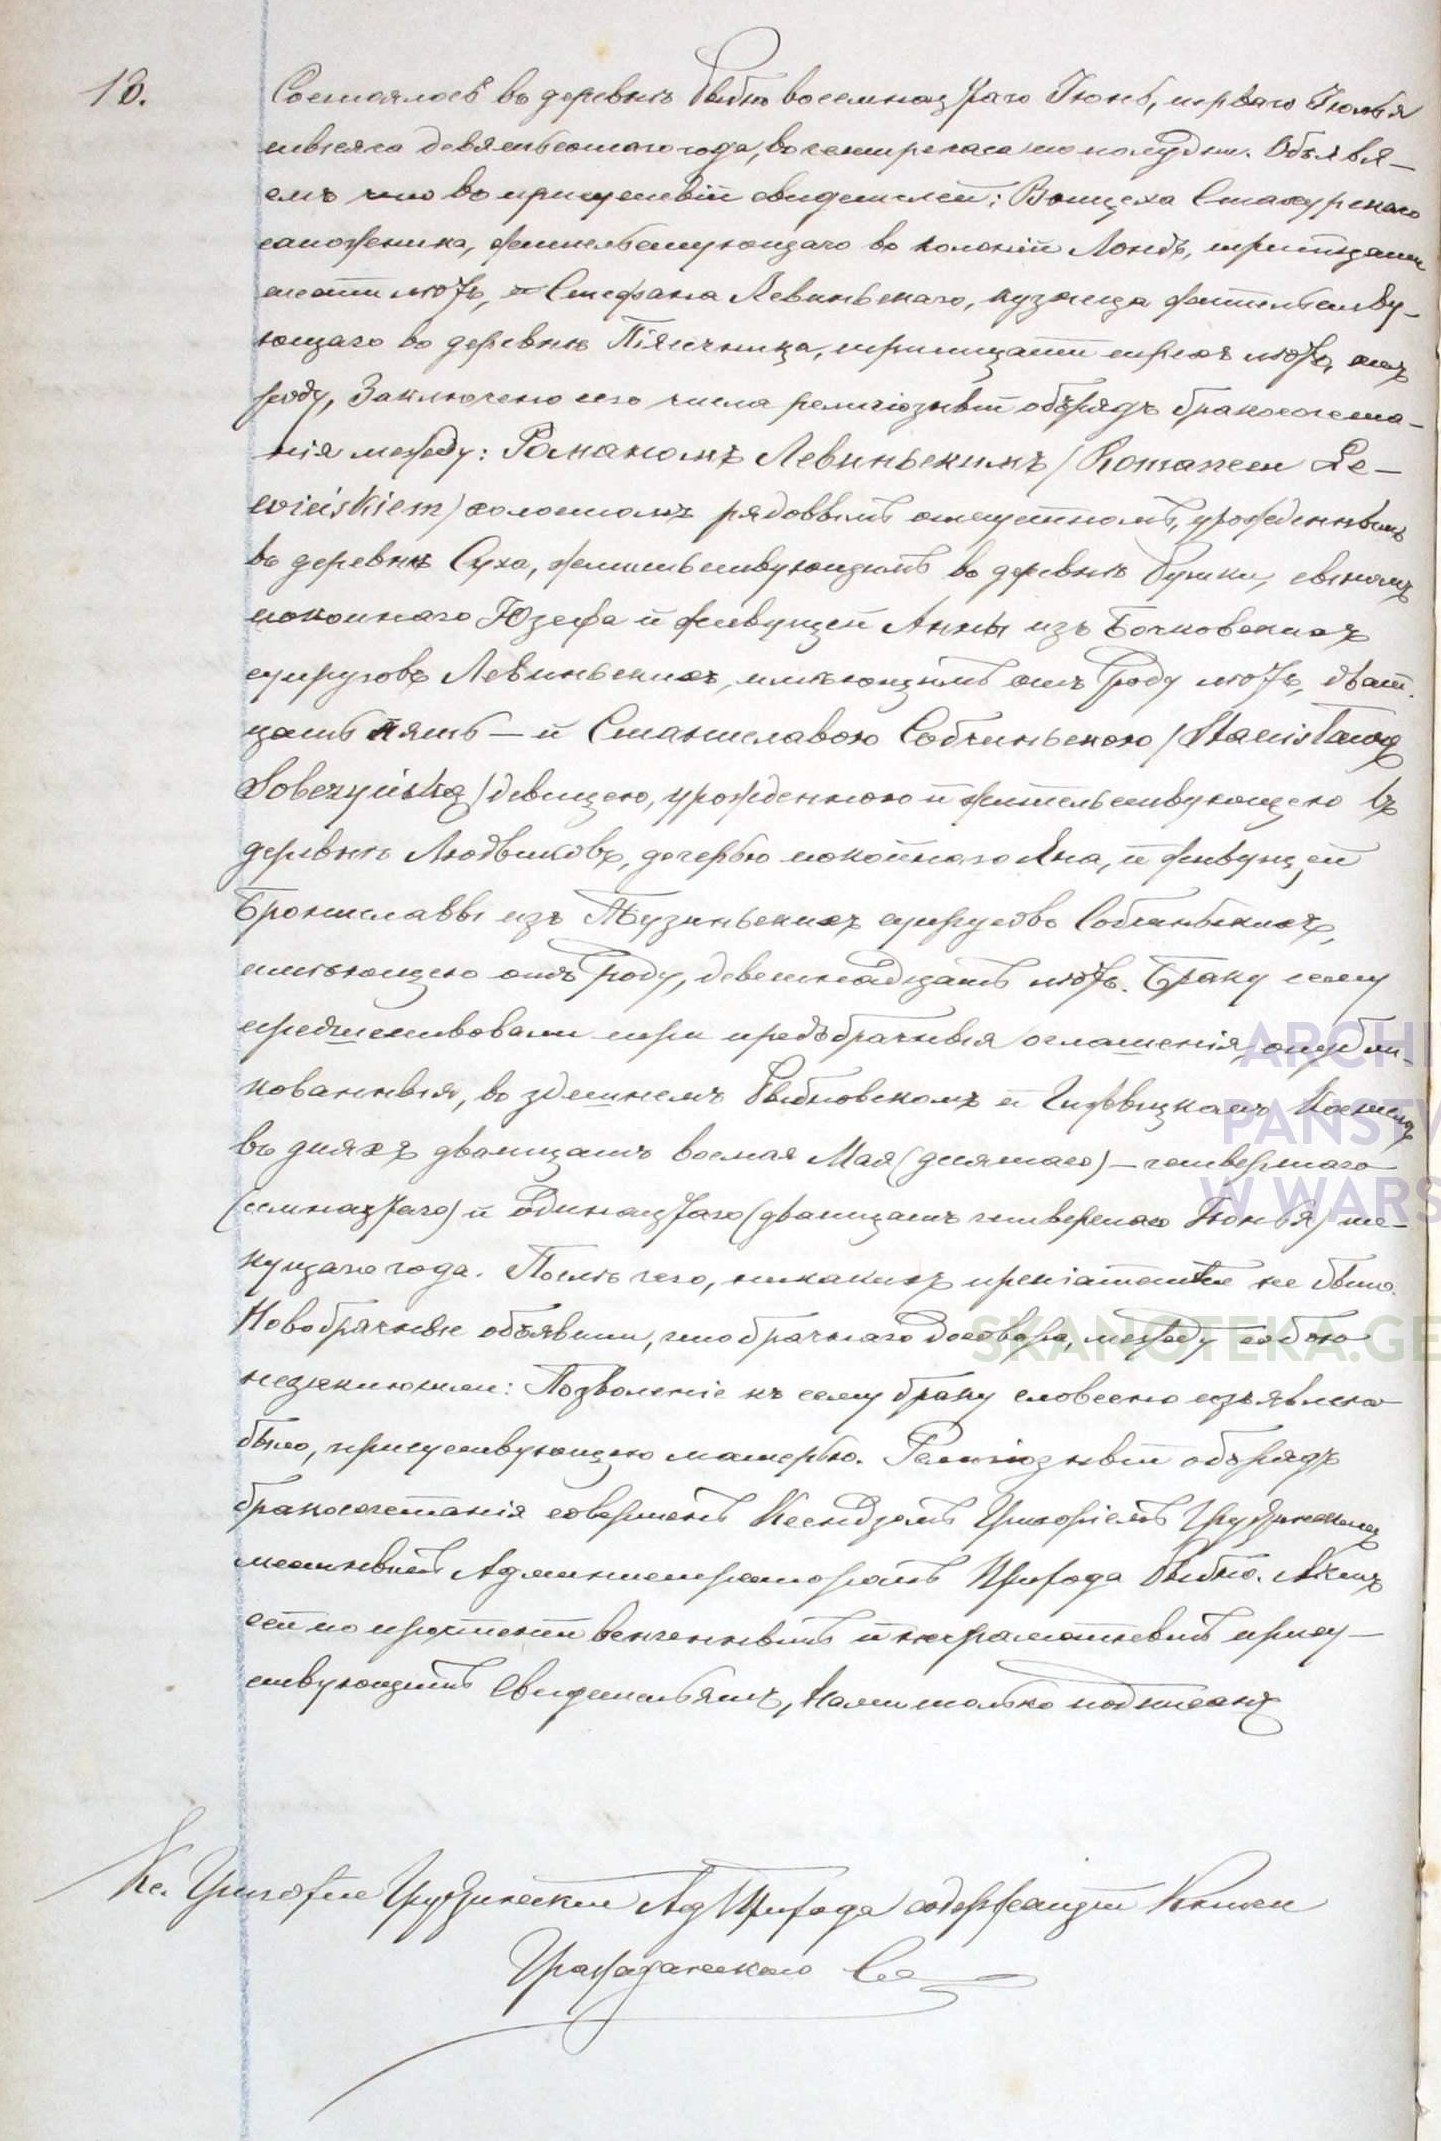 13.
Состоялось въ деревнѣ Рыбно восемнадцатаго Іюня, перваго Іюля
тысяча девятьсотаго года, въ четыре часа по полудни. Объявля-
емъ что въ присутствіи свидетелей: Войцеха
сапожника, жительствующаго въ колоніи тритцати
лѣтъ, и Стефана Левиньскаго, кузнеца жительству-
ющаго въ деревнѣ Пясечница, тритцати трехъ лѣтъ, отъ
роду, Заключено сего числа религіозный обърядъ бракосочета-
нія между: Романомъ Левиньскимъ /Romanem Le-
wińskiem/ холостомъ рядовымъ урожденнымъ
въ деревнѣ Суха, жительствующимъ въ деревнѣ сыномъ
покойнаго Юзефа и живущей Анны изъ Бочковскихъ
супруговъ Левиньскихъ, имѣющимъ отъ роду лѣтъ, двад-
цать пять — и Станиславою Собчиньскою /Stanisławą
Sobczyńską/ девицею, урожденною и жительствующею въ
деревнѣ Людвиковъ, дочерью покойнаго Яна, и живущей
Брониславы изъ супруговъ Собчиньскихъ,
имѣющею отъ роду, девятнадцать лѣтъ. Браку сему
предшествовали три предъбрачныя оглашенія, опубли-
кованныя, въ здешнемъ Рыбновскомъ и Костелахъ
въ дняхъ дватцать восмая Мая (десятаго) — четвертаго
(семнадцатаго) и одинадцатаго (двадцать четвертаго Іюня) те-
кущаго года. Послѣ чего, никакихъ препятствій не было.
Новобрачные объявили, что брачнаго договора, между собою
незаключили: Позволеніе къ сему браку словесно изъявлено
было, присуствующею матерью. Религіозный обърядъ
бракосочетанія совершенъ Ксендзомъ Григоріемъ
местнымъ Администраторомъ Прихода Рыбно. Актъ
сей по прочтеніи венченнымъ и неграматнымъ прису-
ствующимъ Свидетелямъ, Нами только подписанъ
Кс. Григорій Ад Прихода содержащій Книги
Гражданскаго Со